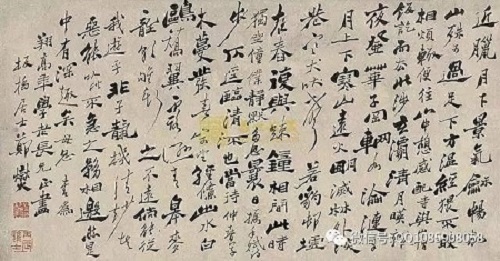 近臘月下景氣龢暢故
山殊可過足下方温經猥不敢
相煩輒便往山中憩感配寺與山僧
飯訖而去北涉玄灞清月映郭
夜登華子岡輞水淪漣與
月上下寒山遠火明滅林外深
巷寒犬吠聲如豹邨墟
夜舂復與疎鐘相間此時
獨坐僮僕靜默多思曩昔携手賦詩
步仄逕臨清流也當待仲春草
木蔓發春山可望輕鯈出水白
鷗矯翼露溼青皋麥
隴朝雊斯之不遠倘能從
我遊乎非子清妙者
能以此不急之務相邀然是
中有深趣矣毋忽
翔高年學世長兄正
板橋居士鄭燮